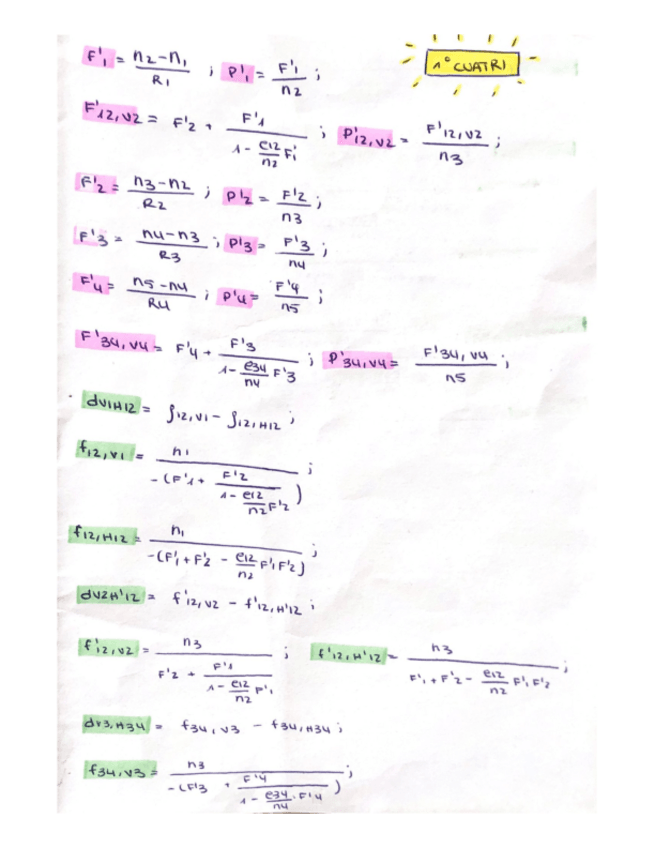 1º CUATRI
F'1 = (n2-n1)/R1 ; P'1 = F'1/n2 ;
F'12,V2 = F'2 + F'1/(1 - (e12/n2) F'1) ; P'12,V2 = F'12,V2/n3 ;
F'2 = (n3-n2)/R2 ; P'2 = F'2/n3 ;
F'3 = (n4-n3)/R3 ; P'3 = F'3/n4 ;
F'4 = (n5-n4)/R4 ; P'4 = F'4/n5 ;
F'34,V4 = F'4 + F'3/(1 - (e34/n4) F'3) ; P'34,V4 = F'34,V4/n5 ;
dV1H12 = f12,V1 - f12,H12 ;
f12,V1 = n1/(-(F'1 + F'2/(1 - (e12/n2) F'2))) ;
f12,H12 = n1/(-(F'1 + F'2 - (e12/n2) F'1 F'2)) ;
dV2H'12 = f'12,V2 - f'12,H'12 ;
f'12,V2 = n3/(F'2 + F'1/(1 - (e12/n2) F'1)) ; f'12,H'12 = n3/(F'1 + F'2 - (e12/n2) F'1 F'2) ;
dV3,H34 = f34,V3 - f34,H34 ;
f34,V3 = n3/(-(F'3 + F'4/(1 - (e34/n4) · F'4))) ;